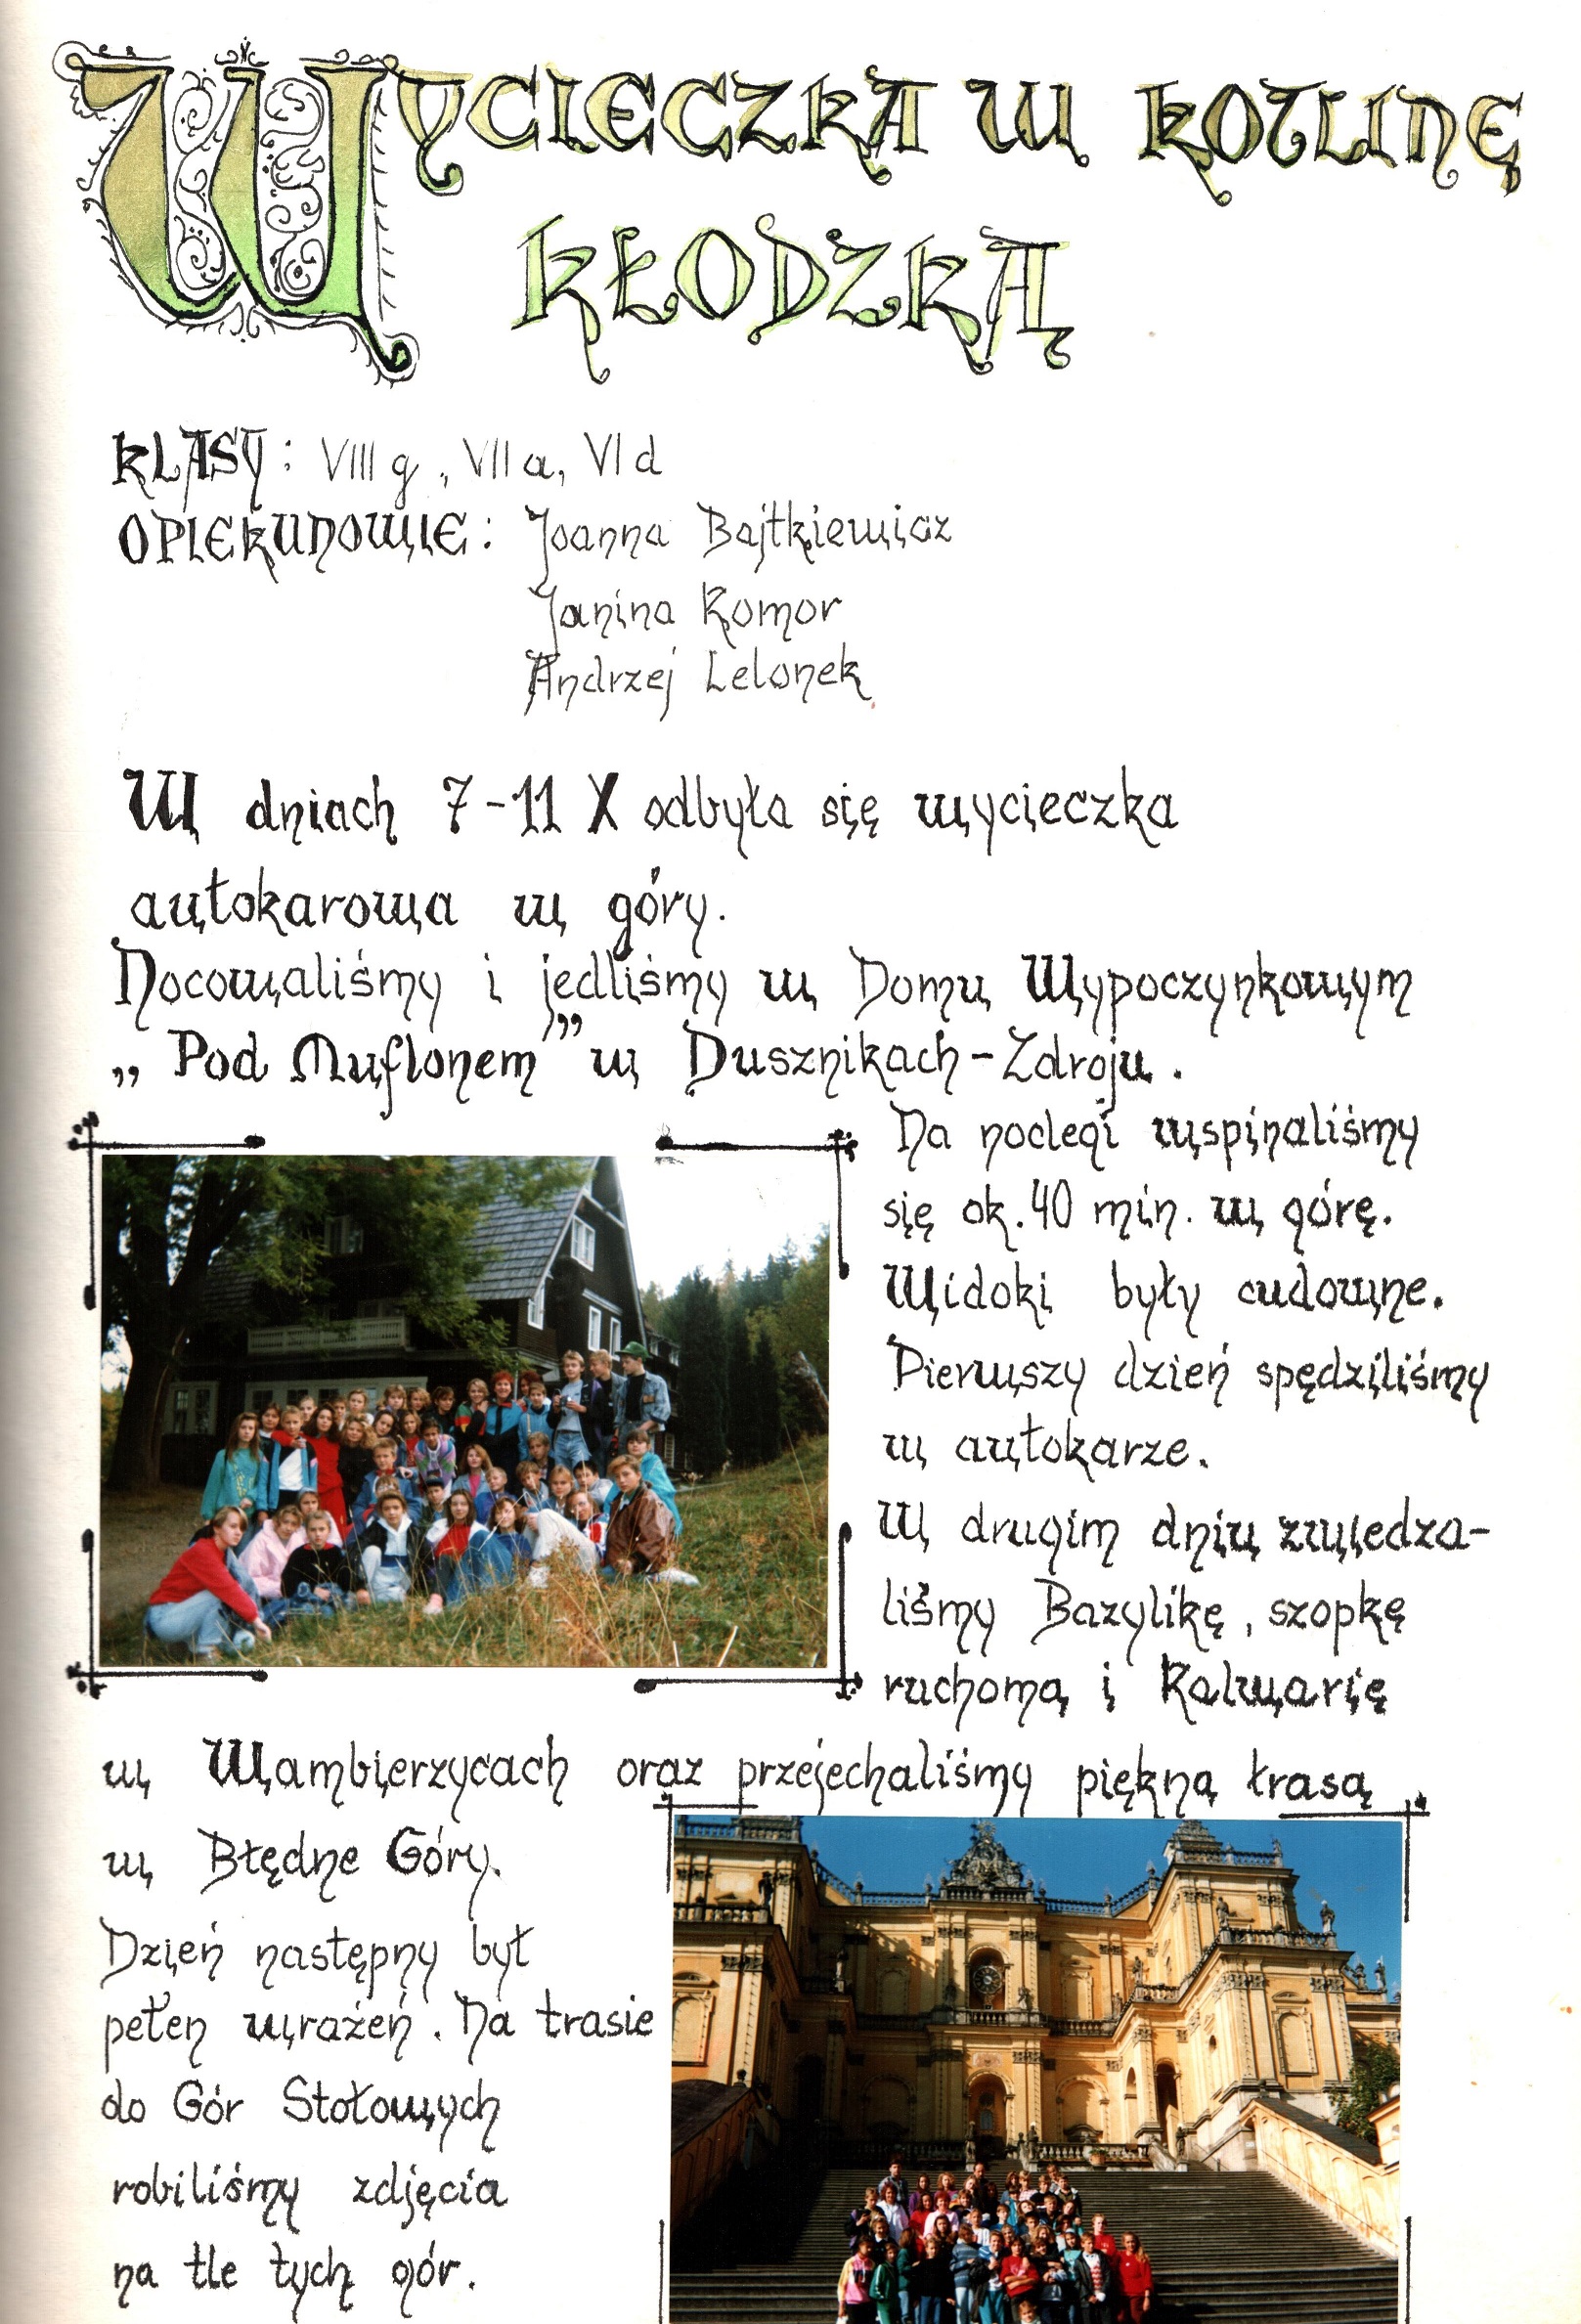 WYCIECZKA W KOTLINĘ
KŁODZKĄ
KLASY: VIII g, VII a, VI d
OPIEKUNOWIE: Joanna Bajtkiewicz
Janina Komor
Andrzej Lelonek
W dniach 7-11 X odbyła się wycieczka
autokarowa w góry.
Nocowaliśmy i jedliśmy w Domu Wypoczynkowym
„Pod Muflonem” w Dusznikach-Zdroju.
Na noclegi wspinaliśmy
się ok. 40 min. w górę.
Widoki były cudowne.
Pierwszy dzień spędziliśmy
w autokarze.
W drugim dniu zwiedza-
liśmy Bazylikę, szopkę
ruchomą i Kalwarię
w Wambierzycach oraz przejechaliśmy piękną trasą
w Błędne Góry.
Dzień następny był
pełen wrażeń. Na trasie
do Gór Stołowych
robiliśmy zdjęcia
na tle tych gór.